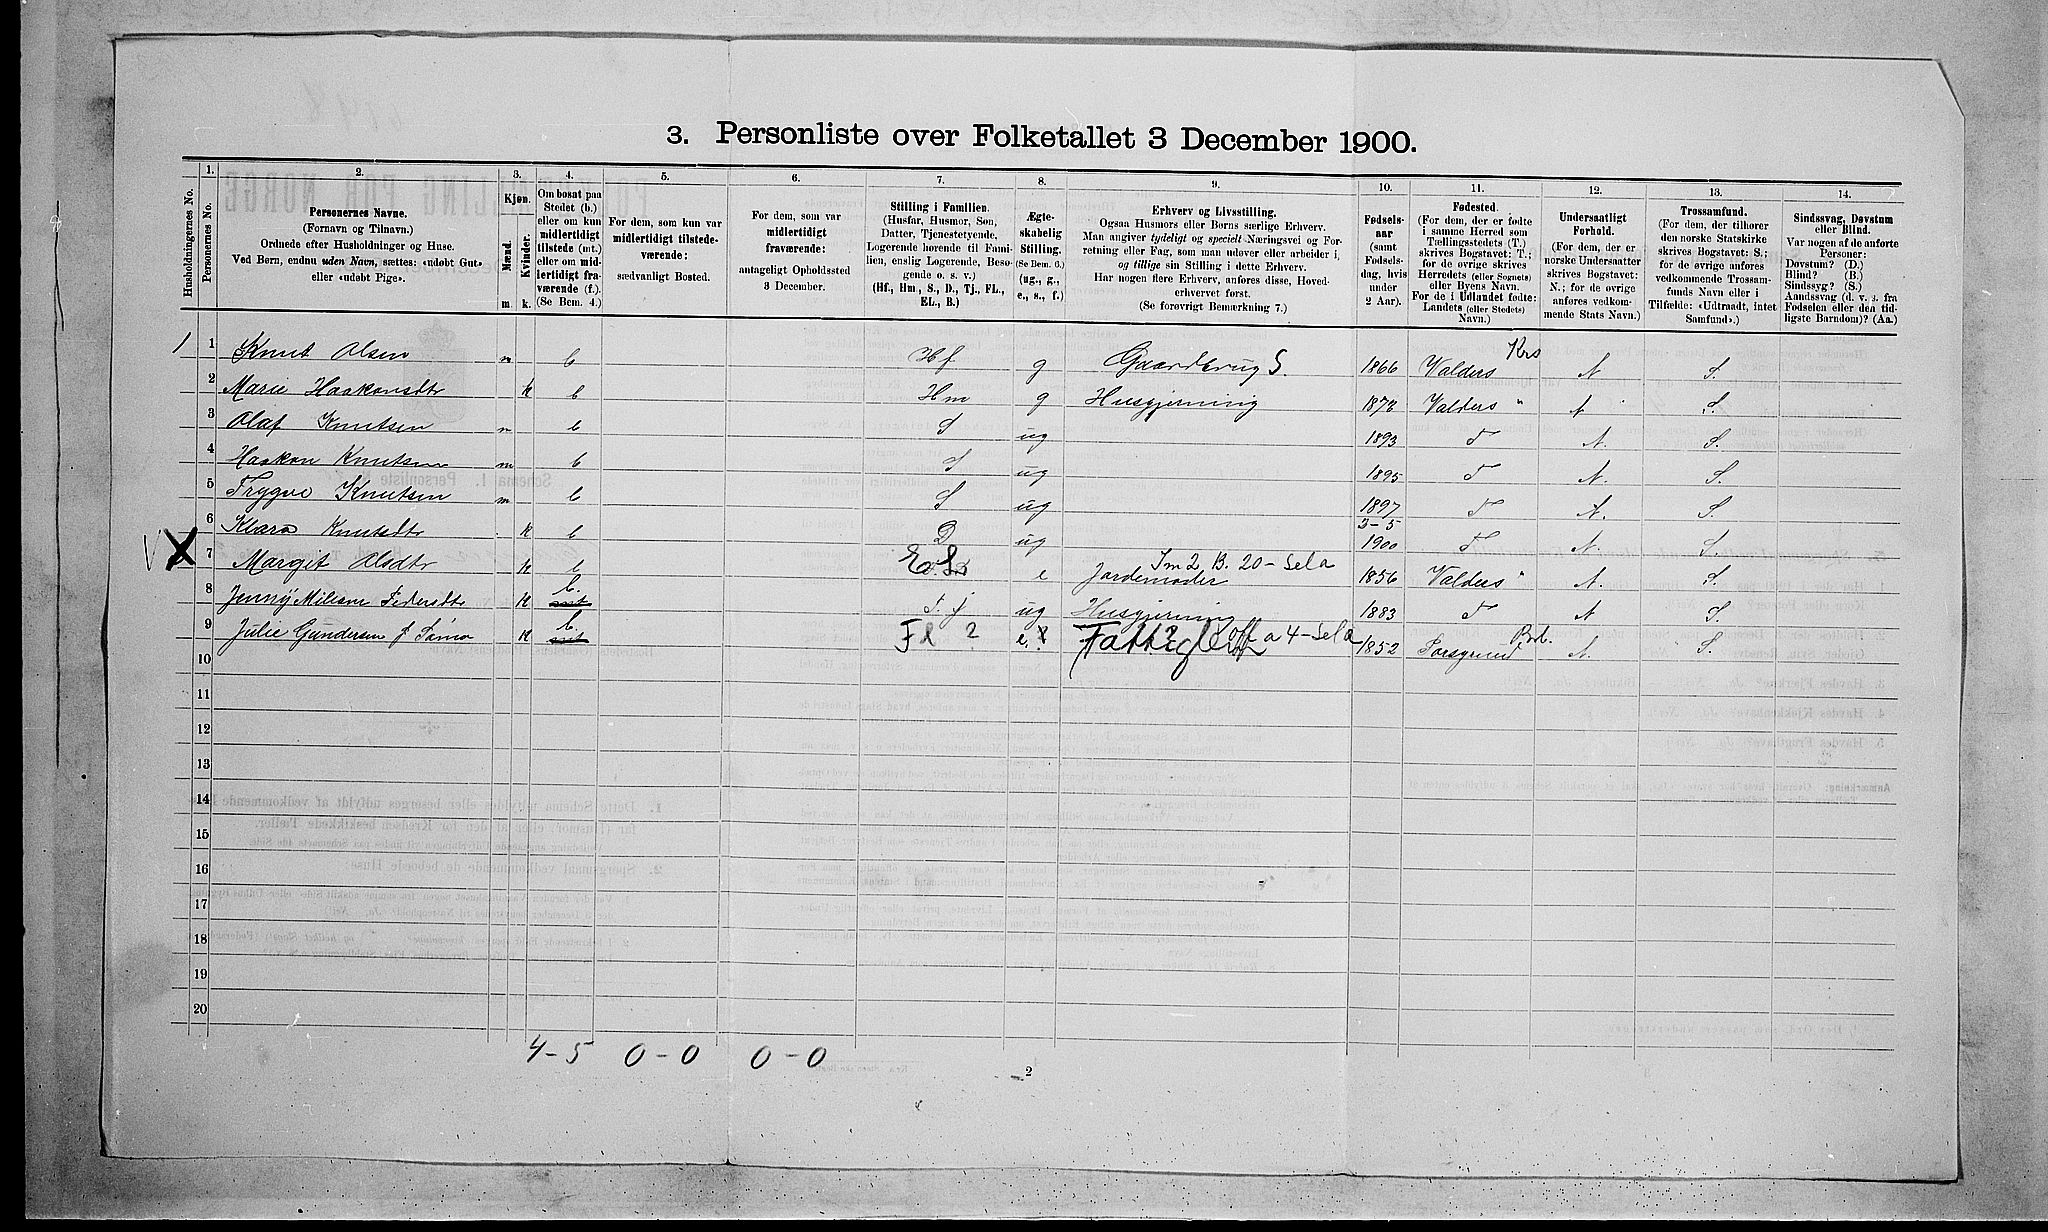 3. Personliste over Folketallet 3 December 1900.
Husholdningernes No.
1.
Personernes No.
2.
Personernes Navne.
(Fornavn og Tilnavn.)
Ordnede efter Husholdninger og Huse.
Ved Børn, endnu uden Navn, sættes: «udøbt Gut»
eller «udøbt Pige».
3.
Kjøn.
Mænd.
Kvinder.
m. k.
4.
Om bosat paa
Stedet (b.)
eller om kun
midlertidigt
tilstede (mt.)
eller om mid-
lertidigt fra-
værende (f.).
(Se Bem. 4.)
5.
For dem, som kun var
midlertidigt tilstede-
værende:
sædvanligt Bosted.
6.
For dem, som var
midlertidigt
fraværende:
antageligt Opholdssted
3 December.
7.
Stilling i Familien.
(Husfar, Husmor, Søn,
Datter, Tjenestetyende,
Logerende hørende til Fami-
lien, enslig Logerende, Besø-
gende o. s. v.)
(Hf., Hm., S., D., Tj., FL.,
EL., B.)
8.
Ægte-
skabelig
Stilling.
(Se Bem. 6.)
(ug., g.,
e., s., f.)
9.
Erhverv og Livsstilling.
Ogsaa Husmors eller Børns særlige Erhverv.
Man angiver tydeligt og specielt Næringsvei og For-
retning eller Fag, som man udøver eller arbeider i,
og tillige sin Stilling i dette Erhverv.
Har nogen flere Erhverv, anføres disse, Hoved-
erhvervet først.
(Se forøvrigt Bemærkning 7.)
10.
Fødsels-
aar
(samt
Fødsels-
dag, hvis
under
2 Aar).
11.
Fødested.
(For dem, der er fødte
i samme Herred som
Tællingsstedets (T.)
skrives Bogstavet: T.;
for de øvrige skrives
Herredets (eller Sognets)
eller Byens Navn.
For de i Udlandet fødte:
Landets (eller Stedets)
Navn.)
12.
Undersaatligt
Forhold.
(For dem, der er
norske Undersaatter
skrives Bogstavet:
N.; for de øvrige
anføres vedkom-
mende Stats Navn.)
13.
Trossamfund.
(For dem, der tilhører
den norske Statskirke
skrives Bogstavet: S.;
for de øvrige anføres
vedkommende Trossam-
funds Navn eller i
Tilfælde: «Udtraadt, intet
Samfund».)
14.
Sindssvag, Døvstum
eller Blind.
Var nogen af de anførte
Personer:
Døvstum? (D.)
Blind? (B.)
Sindssyg? (S.)
Aandssvag (d. v. s. fra
Fødselen eller den tid-
ligste Barndom)? (Aa.)
1 1 Knut Olsen m b Hf g Gaardbrug S. 1866 Valders Krs N S.
2 Marie Haakonsdtr k b Hm g Husgjerning 1872 Valders " N S.
3 Olaf Knutsen m b S ug 1893 T N. S.
4 Haakon Knutsen m b S ug 1895 T N. S.
5 Trygve Knutsen m b S ug 1897 T N. S.
6 Klara Knutsdtr k b D ug 3-5 1900 T N. S.
V X 7 Margit Olsdtr k b e Im 2 B. 20 - Sela Jordemoder 1856 Valders " N. S.
8 Jenny Milian Pedersdtr k b. mt T.j ug Husgjerning 1883 T N S.
9 Julie Gundersen k b. mt Fl ? e. ? Fattiglem off a 4 - Sela 1852 Porsgrund Brb. N. S.
10
11
12
13
14
15
16
17
18
19
20
4 - 5 0 - 0 0 - 0
2